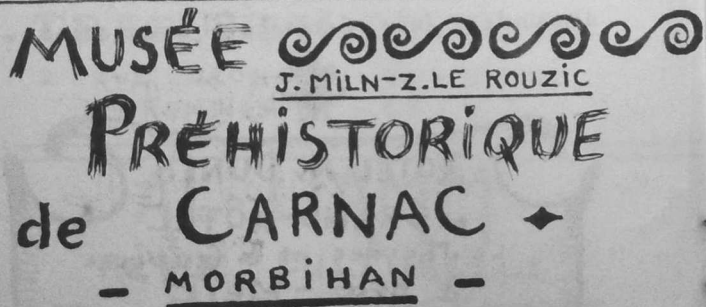 MUSÉE
J. MiLN-Z. LE ROUZiC
PRÉHiSTORiQUE
de CARNAC
- MORBiHAN -